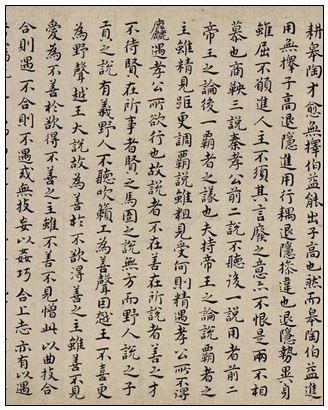 耕皋陶才愈無擇伯益能出子高也然而皋陶伯益進
用無擇子高退隱進用行耦退隱操違也退隱勢異身
雖屈不願進人主不須其言廢之意亦不恨是兩不相
慕也商鞅三說秦孝公前二說不聽後一說用者前二
帝王之論後一霸者之議也夫持帝王之論說霸者之
主雖精見距更調霸說雖粗見受何則精遇孝公所不得
麤遇孝公所欲行也故說者不在善在所說者善之才
不待賢在所事者賢之馬圄之說無方而野人說之子
貢之說有義野人不聽吹籟工為善聲因越王不喜更
為野聲越王大說故為善於不欲得善之主雖善不見
愛為不善於欲得不善之主雖不善不見憎此以曲技合
合則遇不合則不遇或無技妄以姦巧合上志亦有以遇